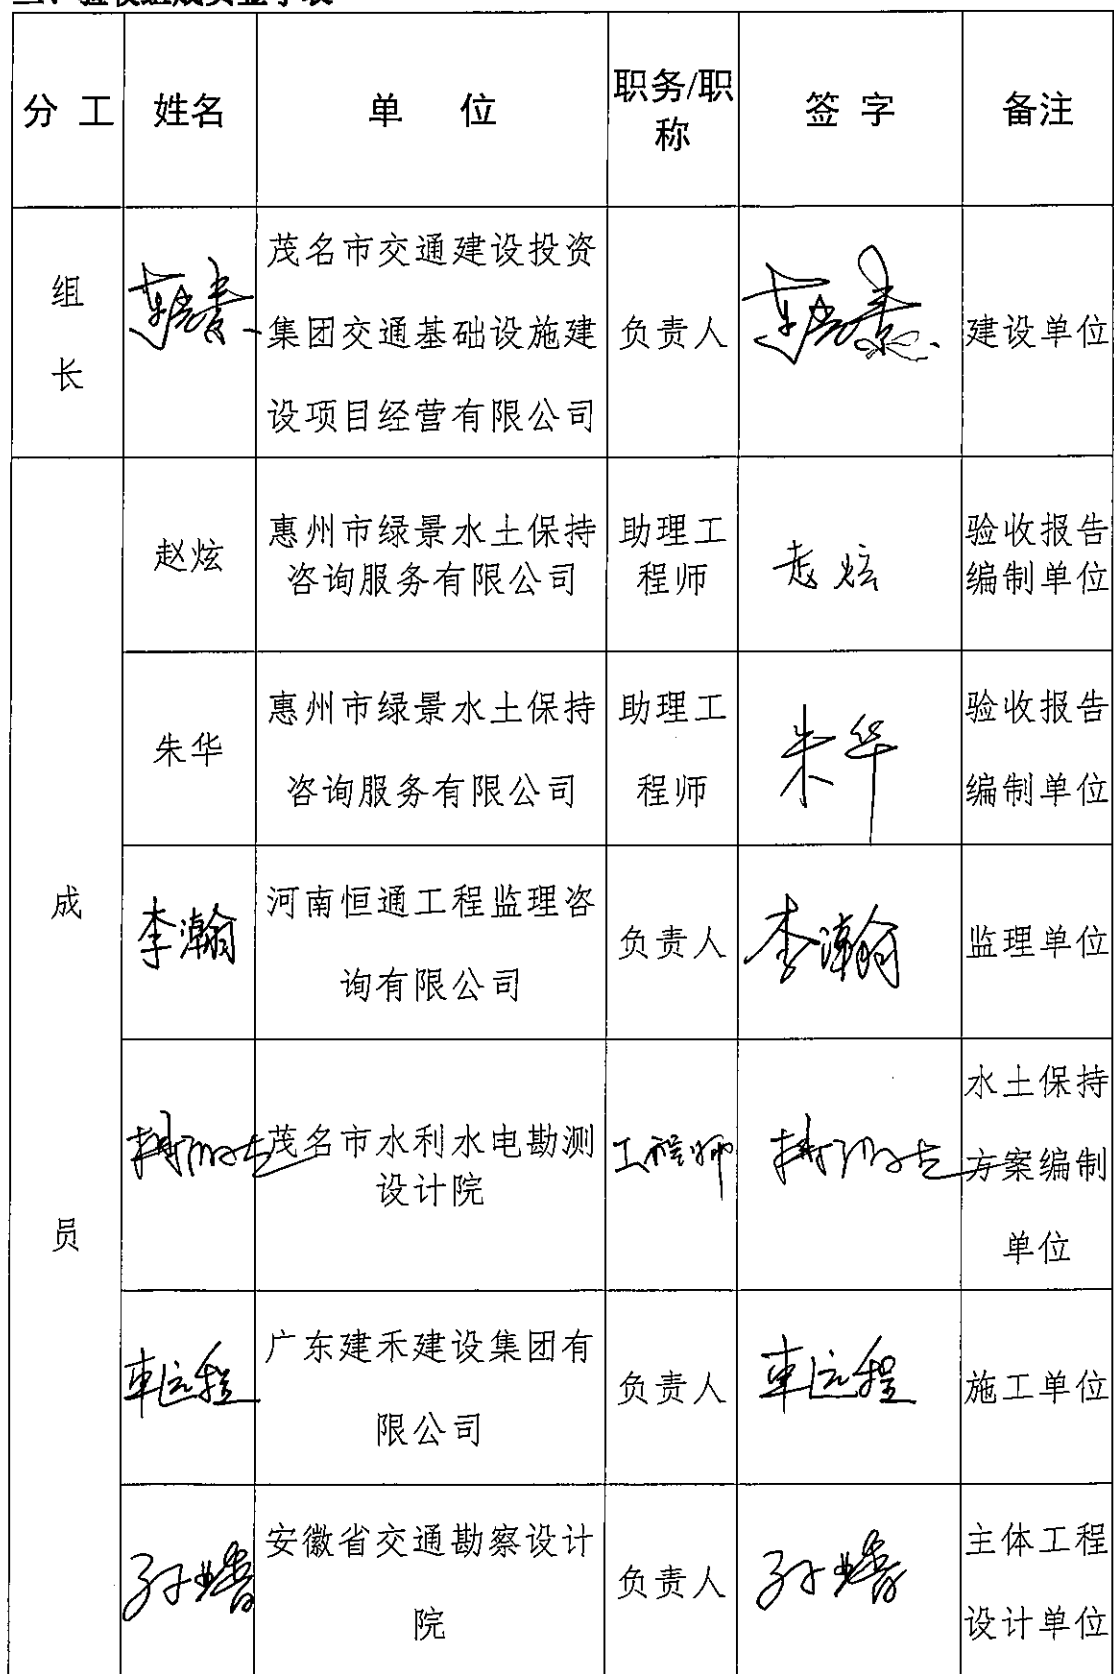 三、验收组成员签字表
分 工 姓名 单 位 职务/职 签 字 备注
称
组
长
茂名市交通建设投资
集团交通基础设施建
设项目经营有限公司
负责人
建设单位
成
员
赵炫
惠州市绿景水土保持
咨询服务有限公司
助理工
程师
赵炫
验收报告
编制单位
朱华
惠州市绿景水土保持
咨询服务有限公司
助理工
程师
朱华
验收报告
编制单位
李瀚
河南恒通工程监理咨
询有限公司
负责人
李瀚
监理单位
茂名市水利水电勘测
设计院
工程师
水土保持
方案编制
单位
车远程
广东建禾建设集团有
限公司
负责人
车远程
施工单位
安徽省交通勘察设计
院
负责人
主体工程
设计单位